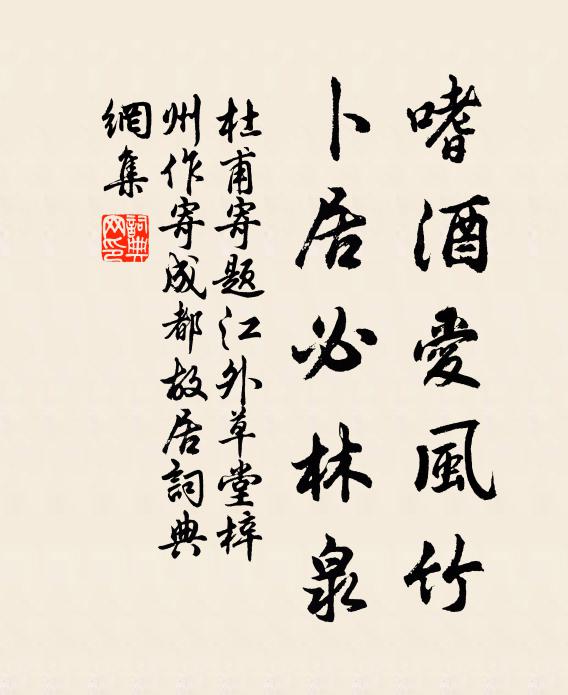 嗜酒愛風竹
卜居必林泉
杜甫寄題江外草堂梓
州作寄成都故居詞典
網集
詞典
网印